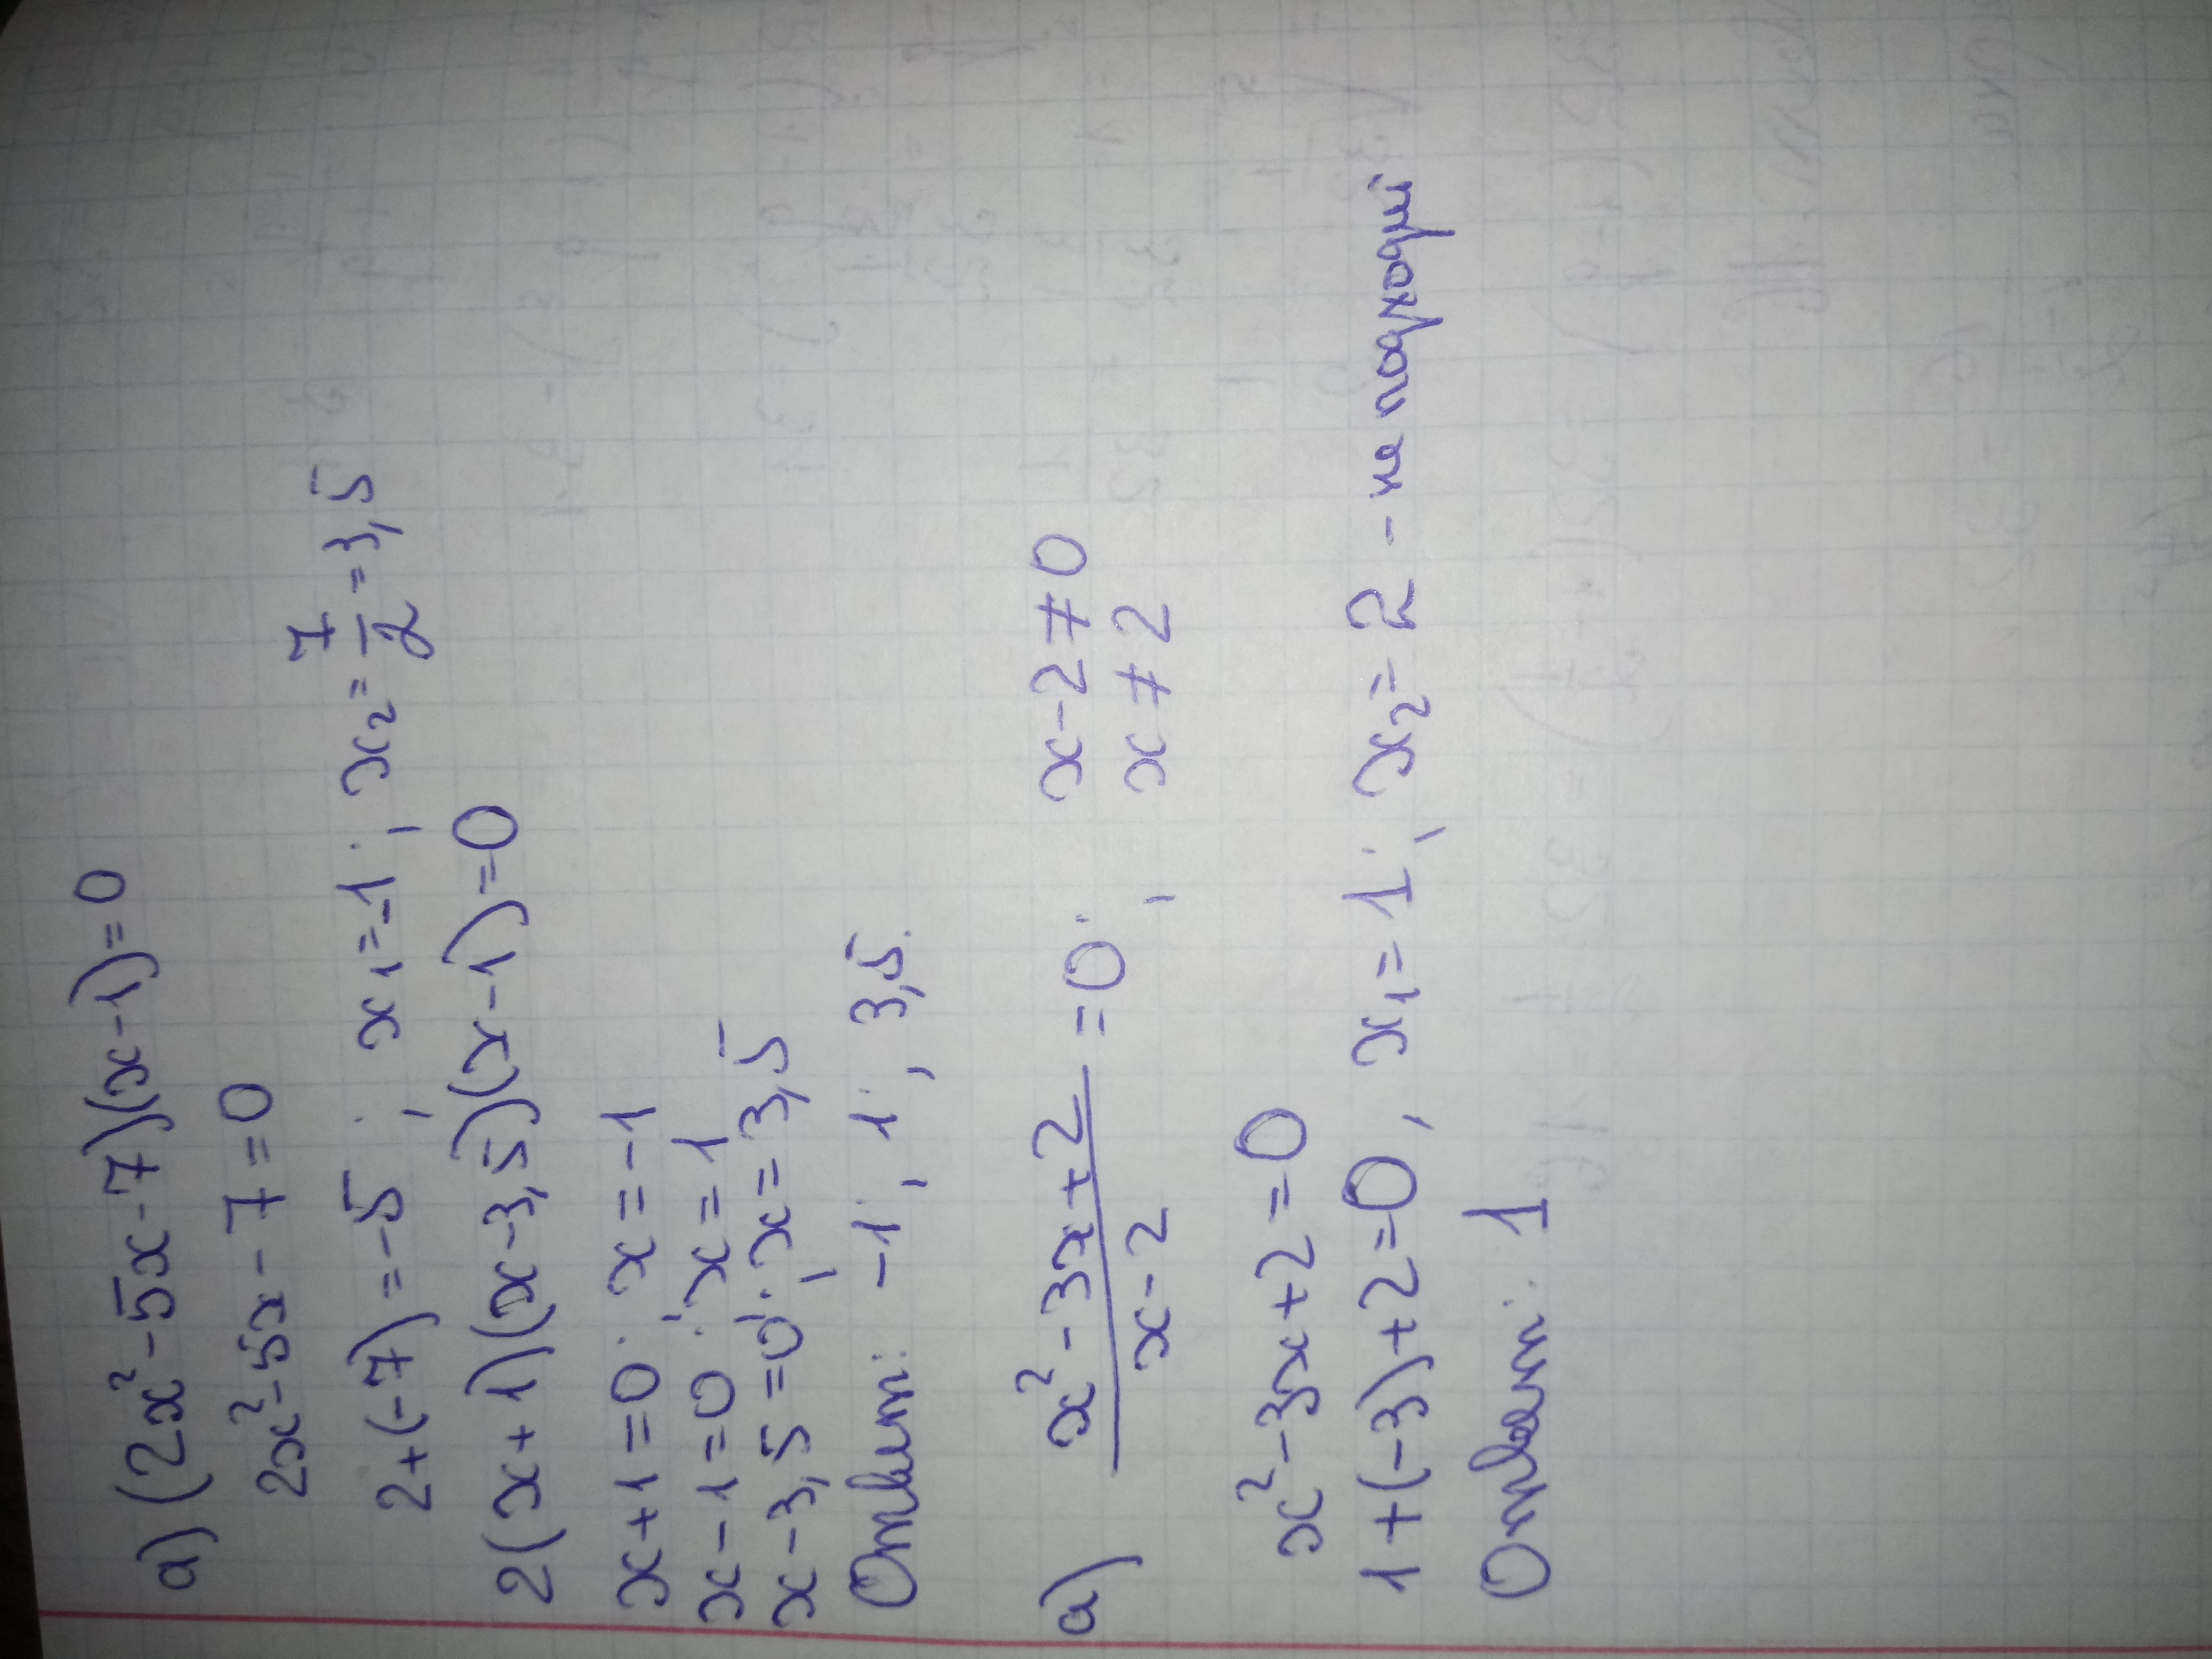 а) (2x²-5x-7)(x-1)=0
2x²-5x-7=0
2+(-7)=-5; x₁=-1; x₂=7/2=3,5
2(x+1)(x-3,5)(x-1)=0
x+1=0; x=-1
x-1=0; x=1
x-3,5=0; x=3,5
Ответ: -1; 1; 3,5.
а) (x²-3x+2)/(x-2)=0; x-2≠0
x≠2
x²-3x+2=0
1+(-3)+2=0, x₁=1; x₂=2 - не подходит
Ответ: 1